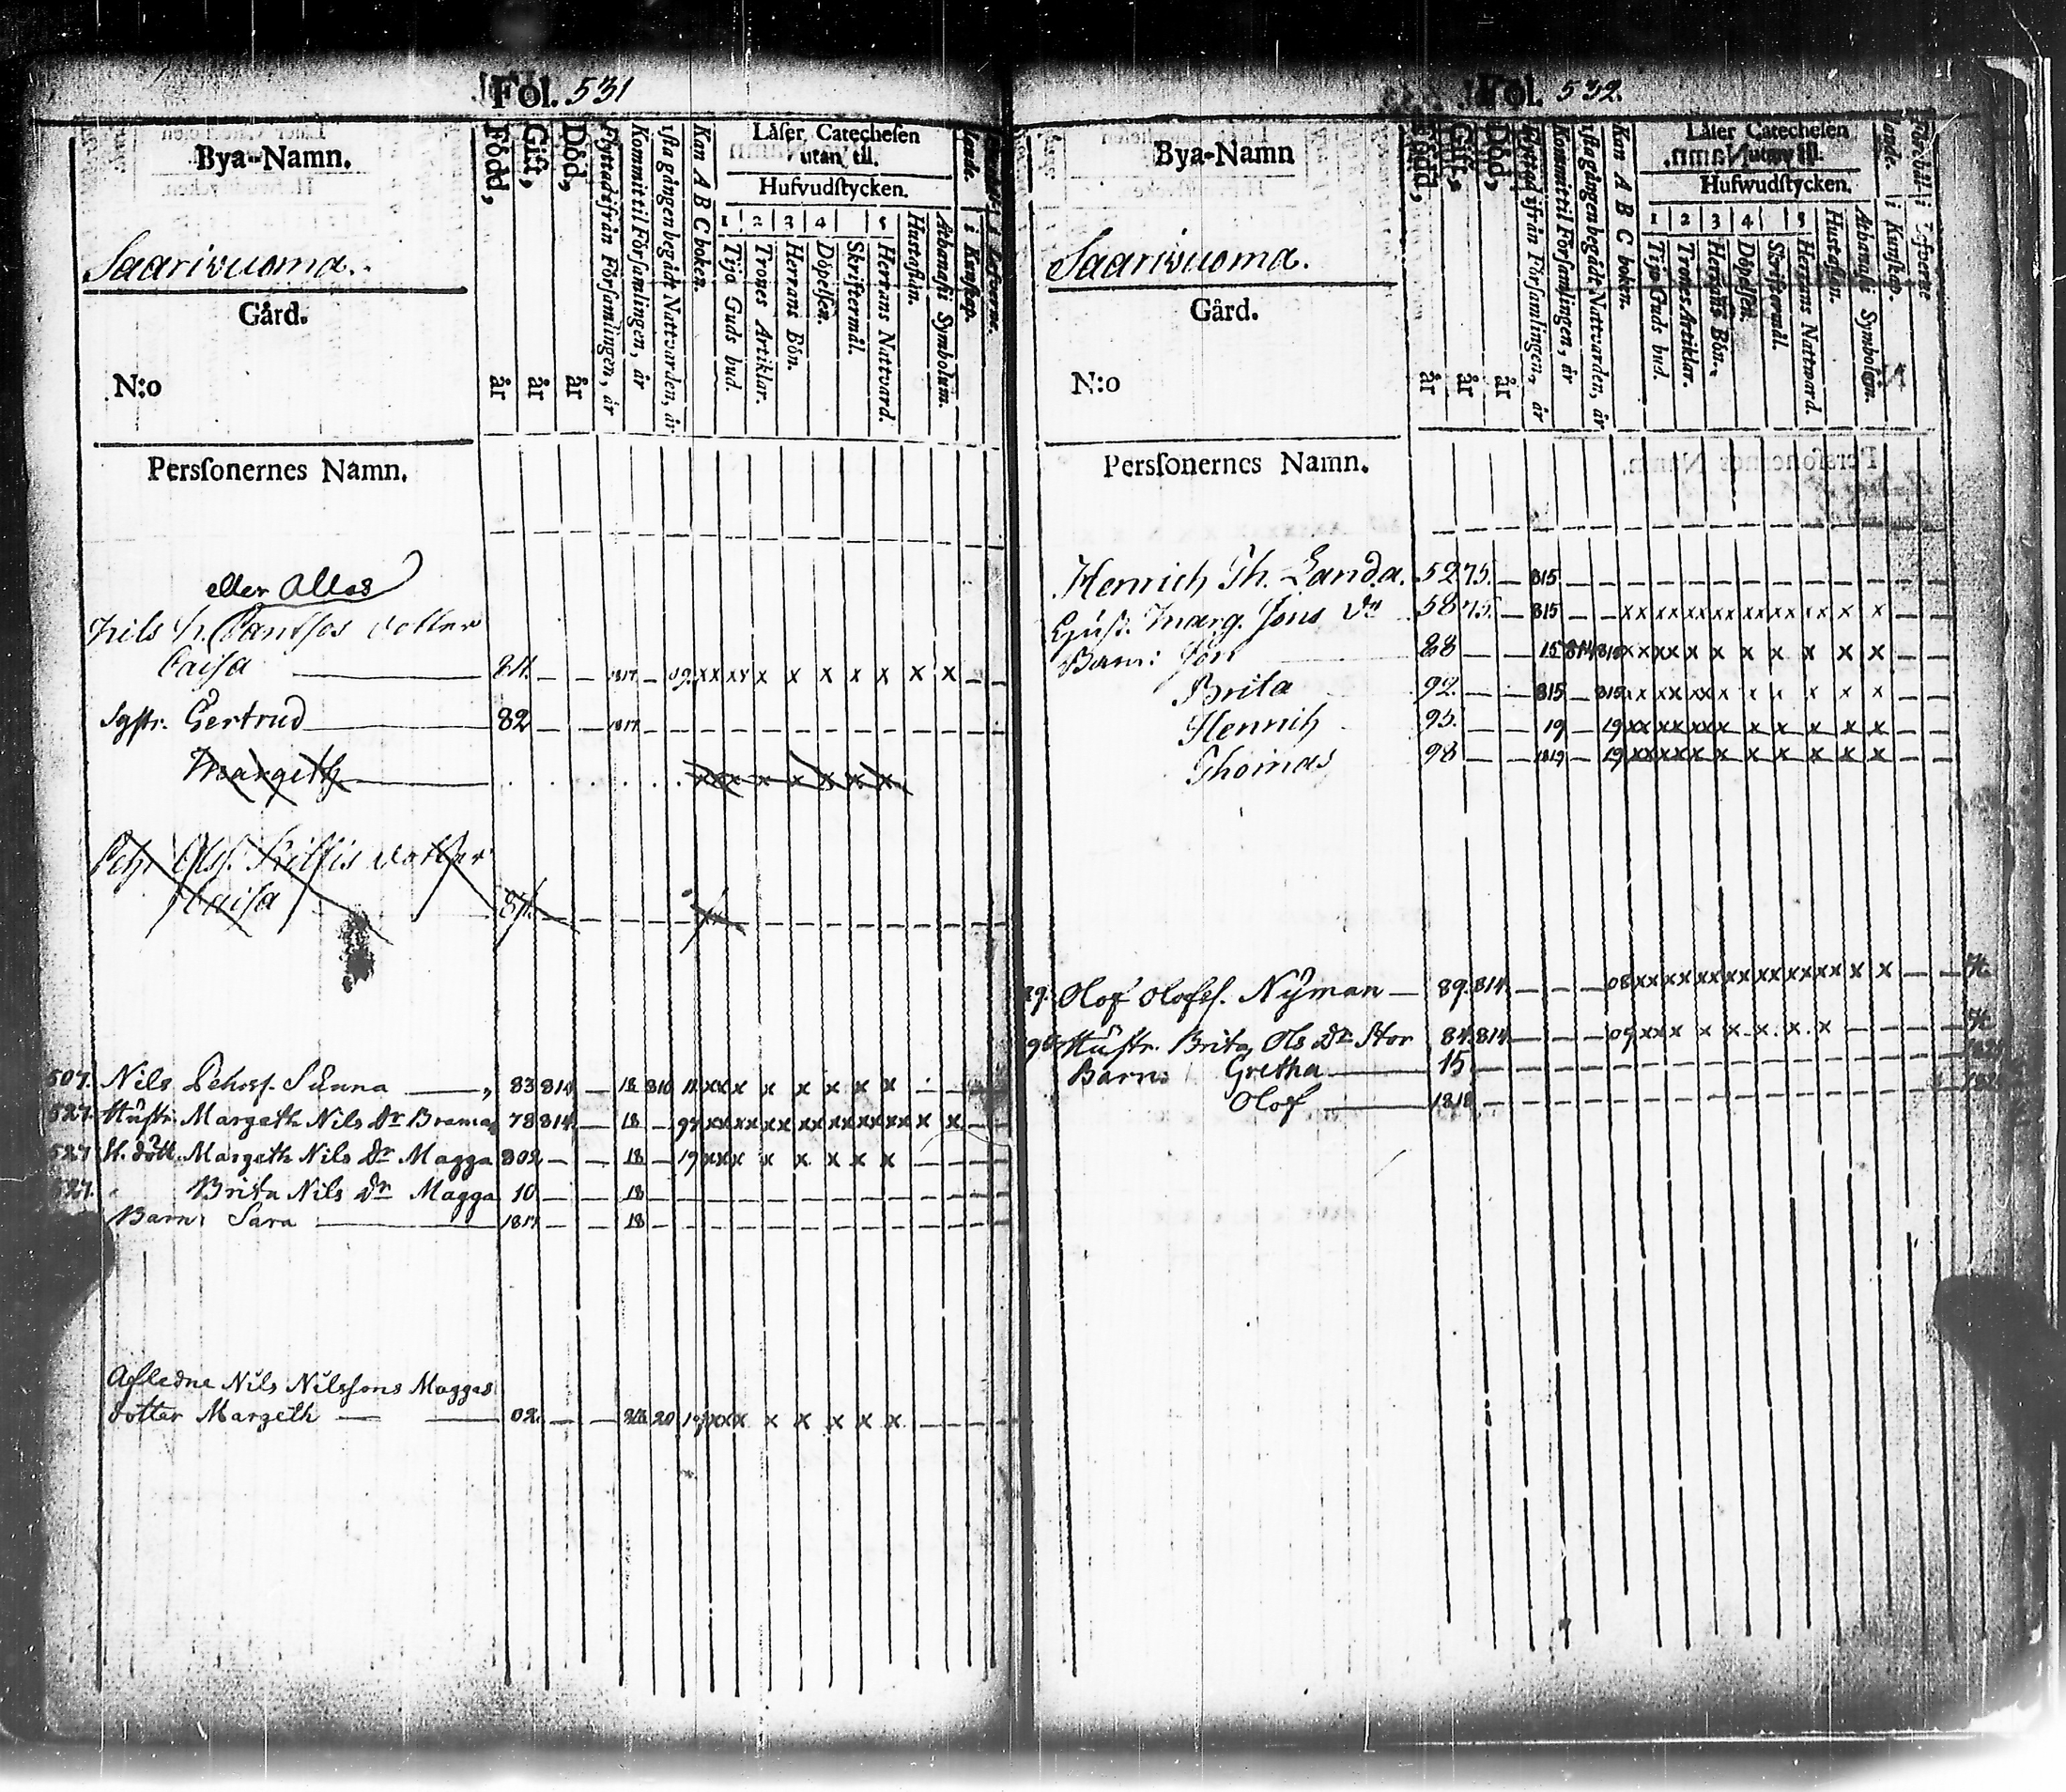 Fol. 531
Bya-Namn.
Saarivuoma.
Gård.
N:o
Persſonernes Namn.
Född, år
Gift, år
Död, år
Flyttad ifrån Förſamlingen, år
Kommit til Förſamlingen, år
1ſta gången begådt Nattvarden, år
Kan A B C boken.
Låſer Catecheſen utan til.
Hufvudſtycken.
1 2 3 4 5
Tijo Guds bud.
Trones Artiklar.
Herrans Bön.
Döpelſen.
Skriftermål.
Herrans Natvard.
Huſtaflan.
Athanaſii Symbolum.
i Kunſkap.
i Lefverne.
eller Allas
Nils h. Pantſos dotter
Caiſa 84. — — 1817. — 09. xx xx x x x x x x x — —
Systr. Gertrud 82 — — 1817. — — — — — — — — — — — —
Margeth xx x x x x x x
Pehr Olſſ. Kittis dotter
Caiſa
507. Nils Pehrsſ. Sunna 83 814 — 18 810 11 xxx x x x x x
527. Huſtr. Margeth Nils Dr 78 814 — 18 — 97 xxxxxx xx xxxxxxx x x —
527 St. dött. Margeth Nils Dr Magga 802 — — 18 — 19 xxx x x x x x — — —
527. Brita Nils Dr Magga 10 — — 18 — — — — — — — — — — —
Barn: Sara 1817 — — 18 — — — — — — — — — — —
Afledne Nils Nilsſons Maggas
dotter Margeth — — 02. — — 20 xxx x x x x x — — —
Fol. 532.
Bya-Namn
Saarivuoma.
Gård.
N:o
Persſonernes Namn.
Född, år
Gift, år
Död, år
Flyttad ifrån Förſamlingen, år
Kommit til Förſamlingen, år
1ſta gången begådt Nattvarden, år
Kan A B C boken.
Låſer Catecheſen utan til.
Hufwudſtycken.
1 2 3 4 5
Tijo Guds bud.
Trones Artiklar.
Herrans Bön.
Döpelſen.
Skriftermål.
Herrans Nattward.
Huſtaflan.
Athanaſii Symbolum.
i Kunſkap.
i Lefverne
Henrich Th. Landa. 52 75. — 815 — — — — — — — — — — — —
Huſt. Marg. Jons Dr 58 75. — 815 — — xx xx xx xx xx xx xx x x — —
Barn: Jon 88 — — 15 xxxx x x x x x x x — —
Brita 92. — — 815 — 815. x x x xxx x x x x x — —
Henrich 95. — — 19 — 19 xx xx xxx x x x x x x — —
Thomas 98 — — 1819 — 19 xxxxx x x x x x x x — —
Olof Olofsſ. Nÿman — 89. 814. — — — 08 xxxx xx xx xx xx xx x x — —
Huſtr. Brita Ols Dr Stor 84. 814 — — — 09 xxx x x x x x — — —
Barn: Gretha 15 — — — — — — — — — — — — —
Olof 1818 — — — — — — — — — — — — —